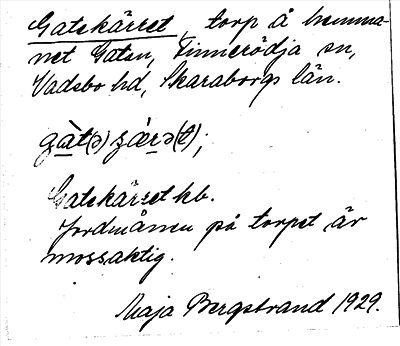 Gatekärret, torp å hemma-
net Gatan, Finnerödja sn,
Vadsbo hd, Skaraborgs län.
gàt(ə)zárə(t);
Gatekärret kb.
Jordmånen på torpet är
mossaktig.
Maja Bergstrand 1929.